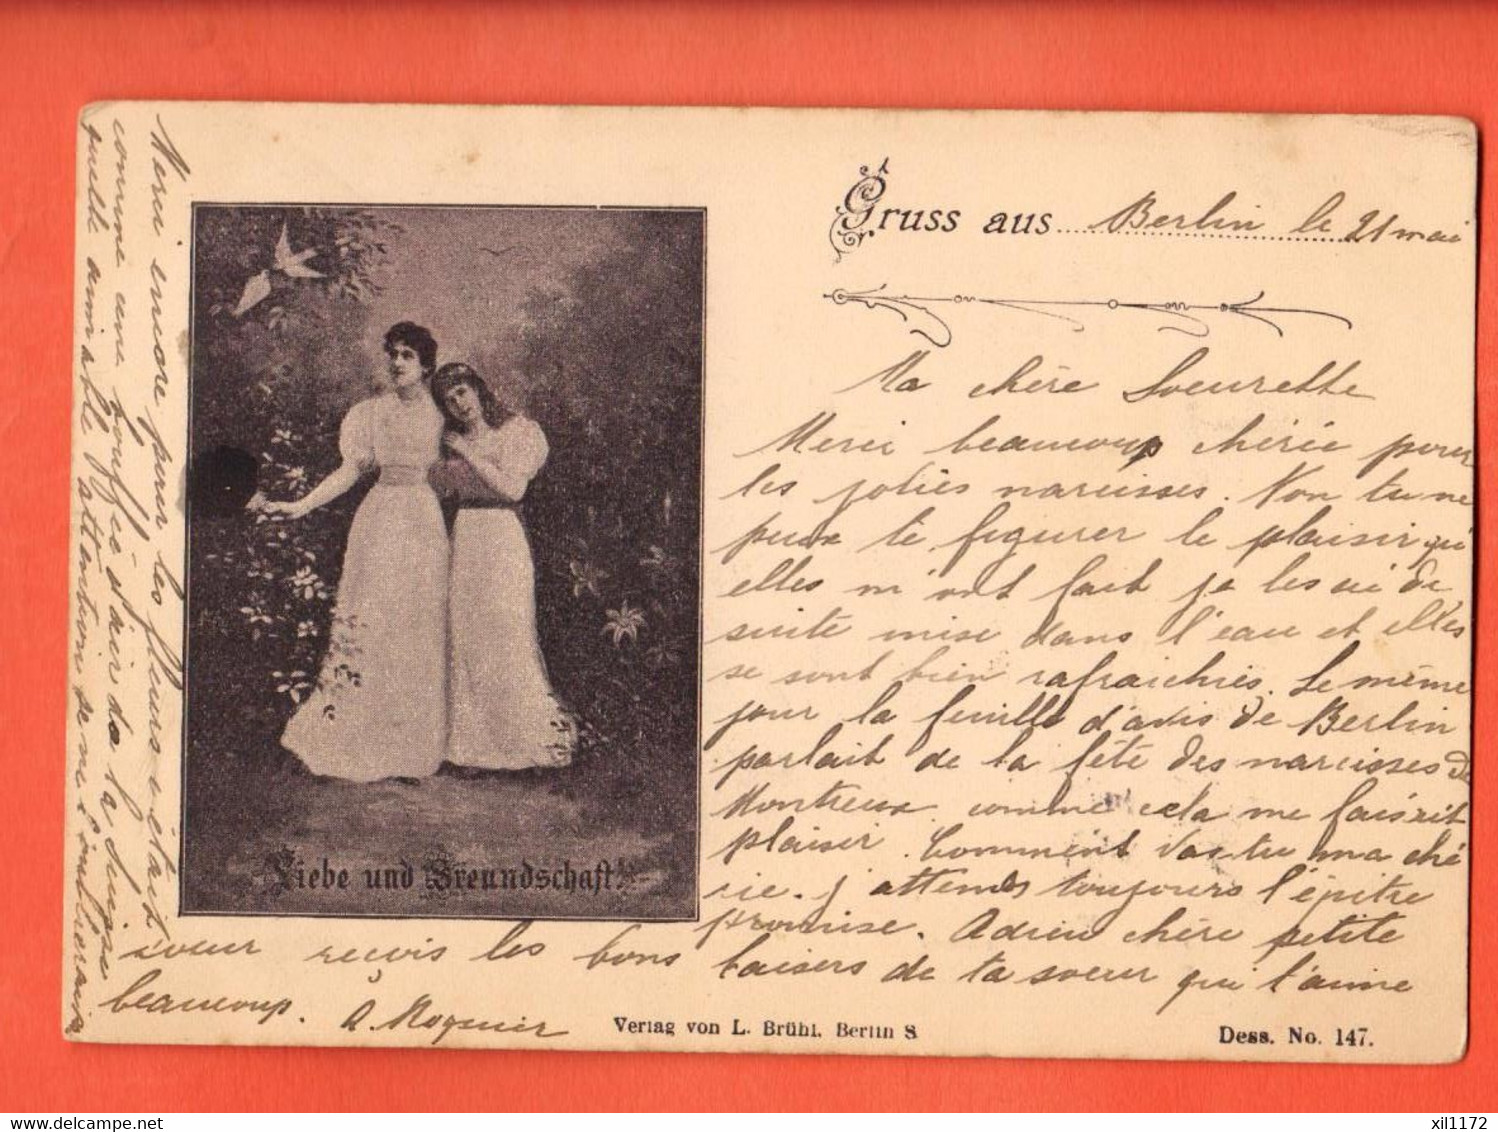 Gruss aus Berlin le 21 mai
Ma chère Soeurette
Merci beaucoup chérie pour
les jolies narcisses. Non tu ne
peux te figurer le plaisir qu'
elles m'ont fait je les ai de
suite mise dans l'eau et elles
se sont bien rafraichies. Le même
jour la feuille d'avis de Berlin
parlait de la fête des narcisses de
Montreux comme cela me faisait
plaiser. Comment vas-tu ma ché
rie. j'attends toujours l'épitre
promise. Adieu chère petite
soeur reçois les bons baisers de ta soeur qui t'aime
beaucoup. A. Rognier
Merci encore pour les fleurs c'était
comme une bouffée d'air de la Suisse
quelle aimable attention
Liebe und Freundschaft!
Verlag von L. Brühl, Berlin S
Dess. No. 147.
delcampe.net
xil1172